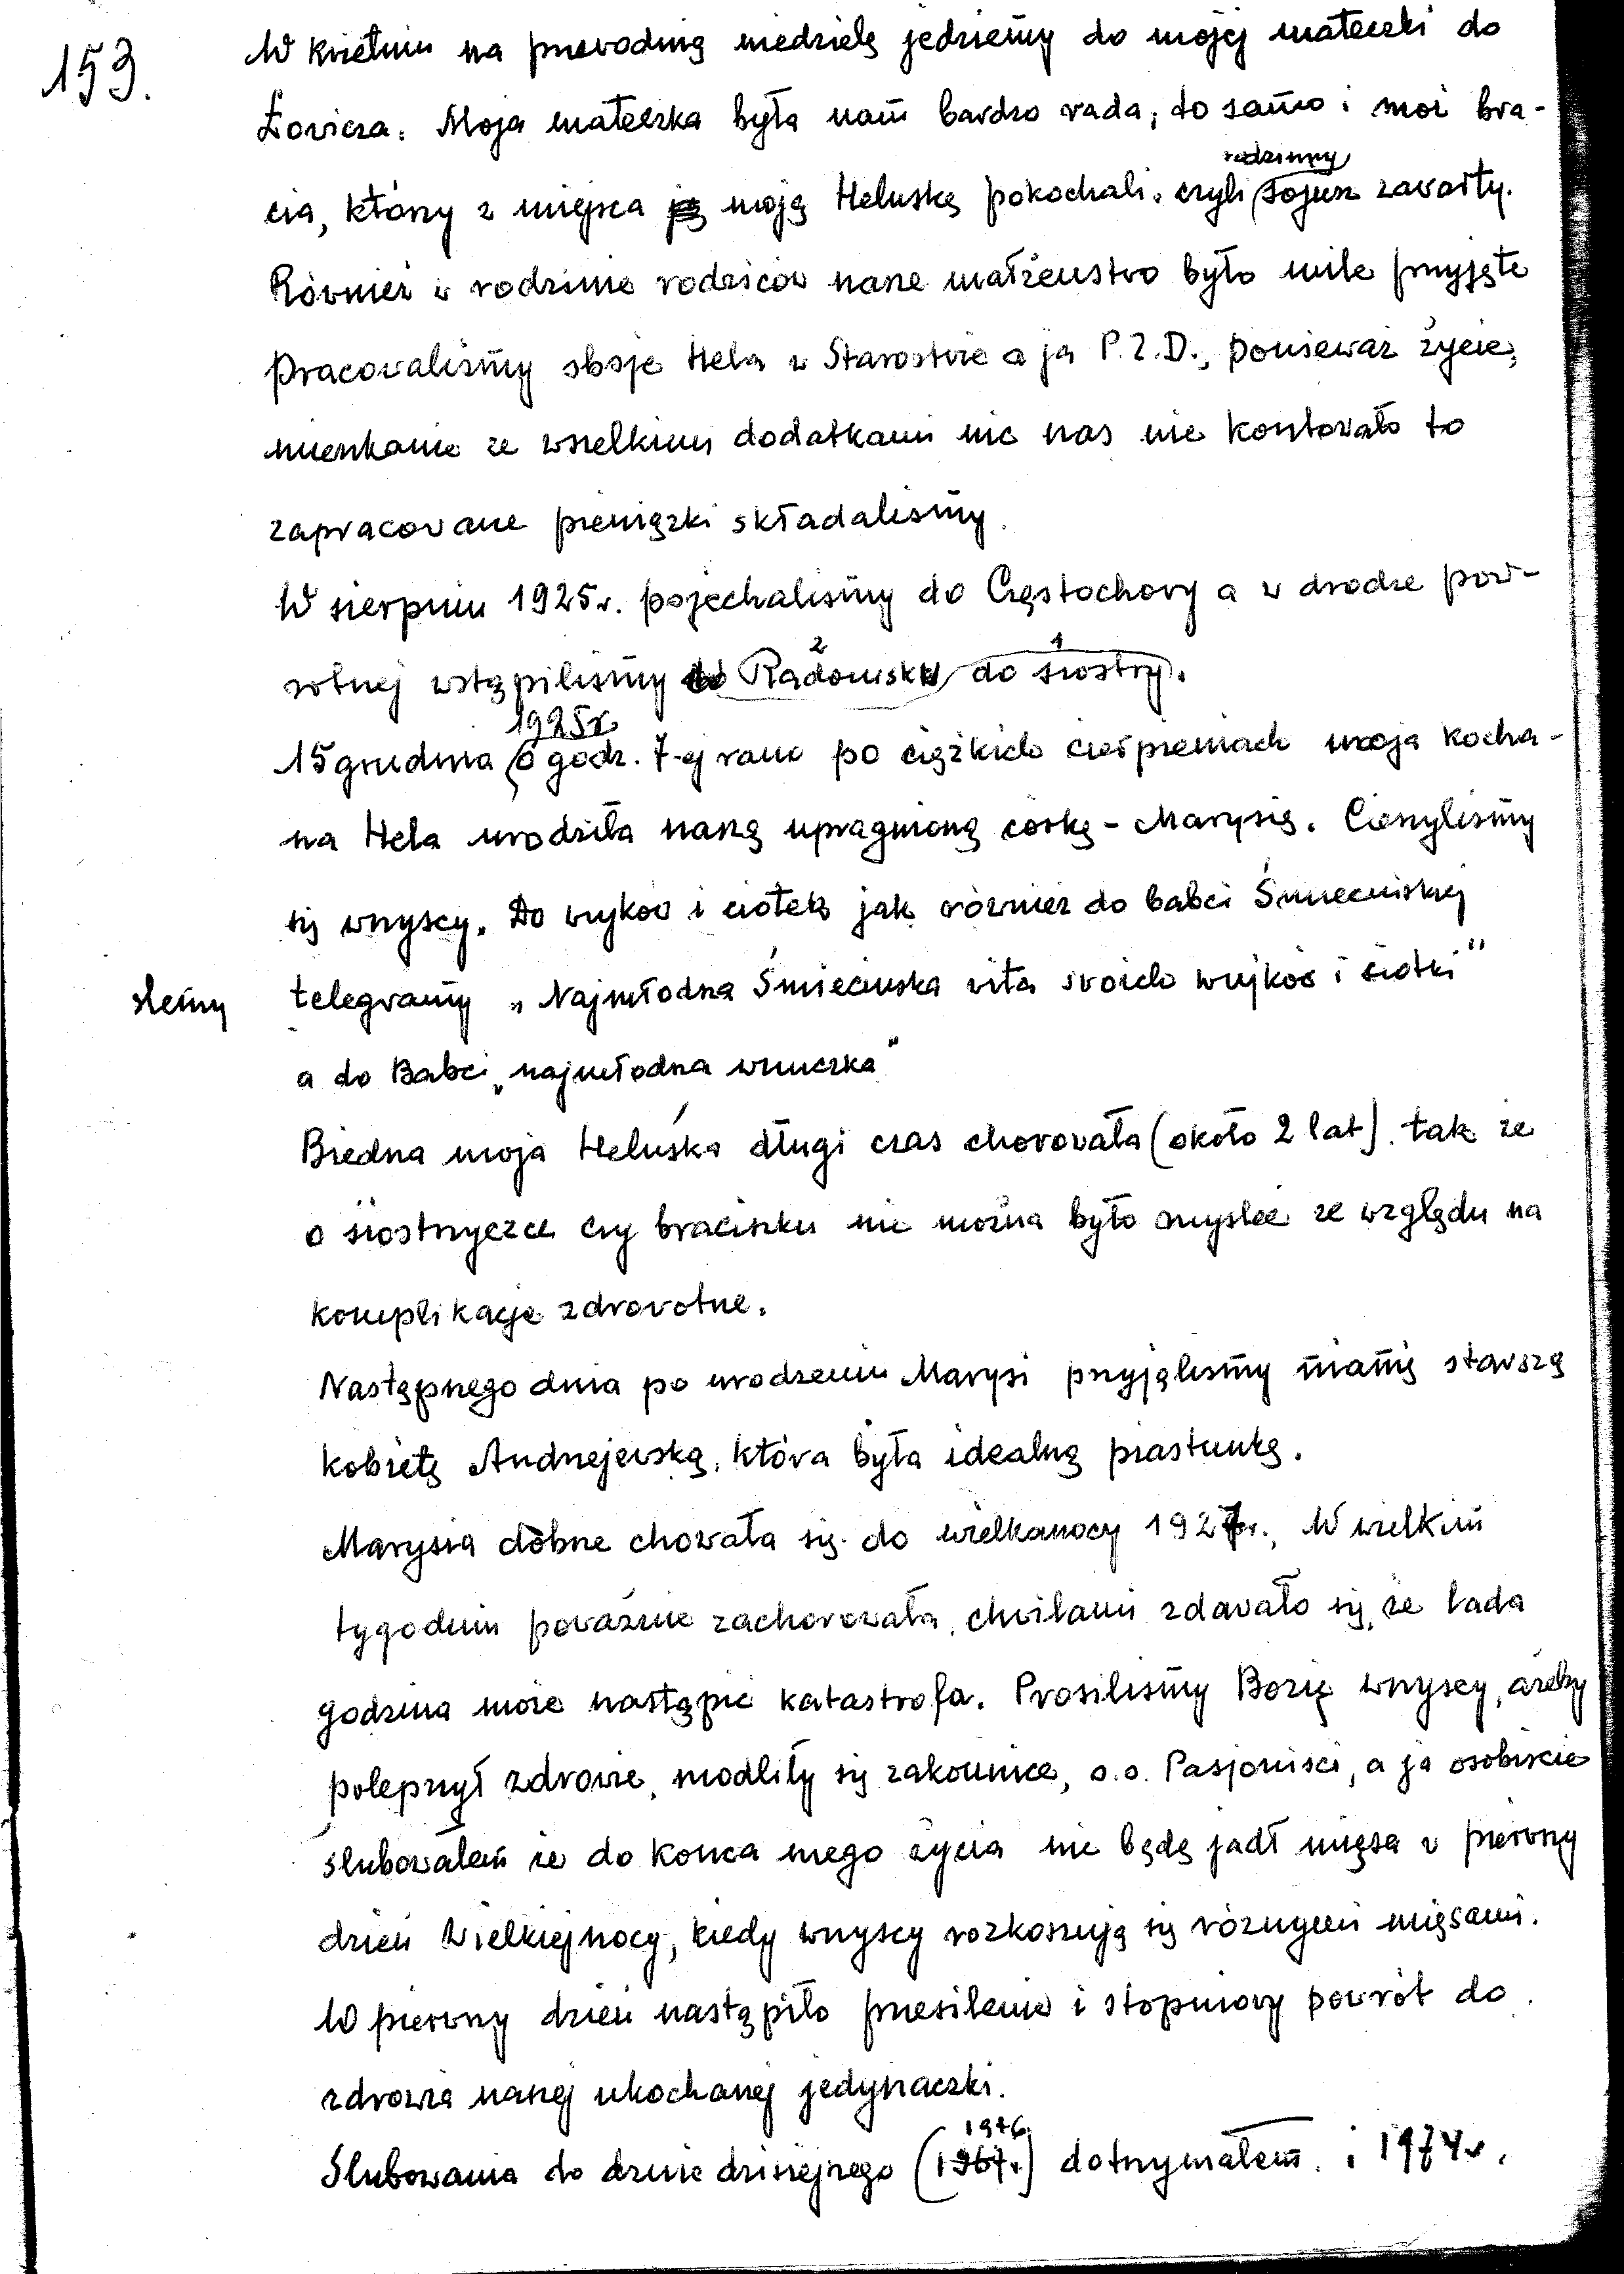 153.
W kwietniu na przewodnią niedzielę jedziemy do mojej mateczki do
Łowicza. Moja mateczka była nam bardzo rada, to samo i moi bra-
cia, którzy z miejsca ją moją Heluskę pokochali, czyli sojusz zawarty.
rodzinny
Również w rodzinie rodziców nasze małżeństwo było mile przyjęte
Pracowaliśmy oboje Hela w Starostwie a ja P.Z.D., ponieważ życie,
mieszkanie ze wszelkimi dodatkami nic nas nie kosztowało to
zapracowane pieniążki składaliśmy.
W sierpniu 1925r. pojechaliśmy do Częstochowy a w drodze pow-
rotnej wstąpiliśmy do Radomsku do siostry.
2 1
15 grudnia o godz. 7-ej rano po ciężkich cierpieniach moja kocha-
1925r.
na Hela urodziła naszą upragnioną córkę - Marysię. Cieszyliśmy
się wszyscy. Do wujków i ciotek jak również do babci Śmiecińskiej
ślemy telegramy „Najmłodsza Śmiecińska wita swoich wujków i ciotki"
a do Babci „najmłodsza wnuczka"
Biedna moja Heluśka długi czas chorowała (około 2 lat). tak że
o siostrzyczce czy braciszku nie można było myśleć ze względu na
komplikacje zdrowotne.
Następnego dnia po urodzeniu Marysi przyjęliśmy nianię starszą
kobietę Andrzejewską, która była idealną piastunką.
Marysia dobrze chowała się do wielkanocy 1927r., W wielkim
tygodniu poważnie zachorowała, chwilami zdawało się, że lada
godzina może nastąpić katastrofa. Prosiliśmy Bozię wszyscy, ażeby
polepszył zdrowie, modliły się zakonnice, o.o. Pasjoniści, a ja osobiście
ślubowałem że do końca mego życia nie będę jadł mięsa w pierwszy
dzień Wielkiejnocy, kiedy wszyscy rozkoszują się różnymi mięsami.
W pierwszy dzień nastąpiło przesilenie i stopniowy powrót do
zdrowia naszej ukochanej jedynaczki.
Ślubowania do dnia dzisiejszego (1967r.) dotrzymałem. i 1974r.
1976